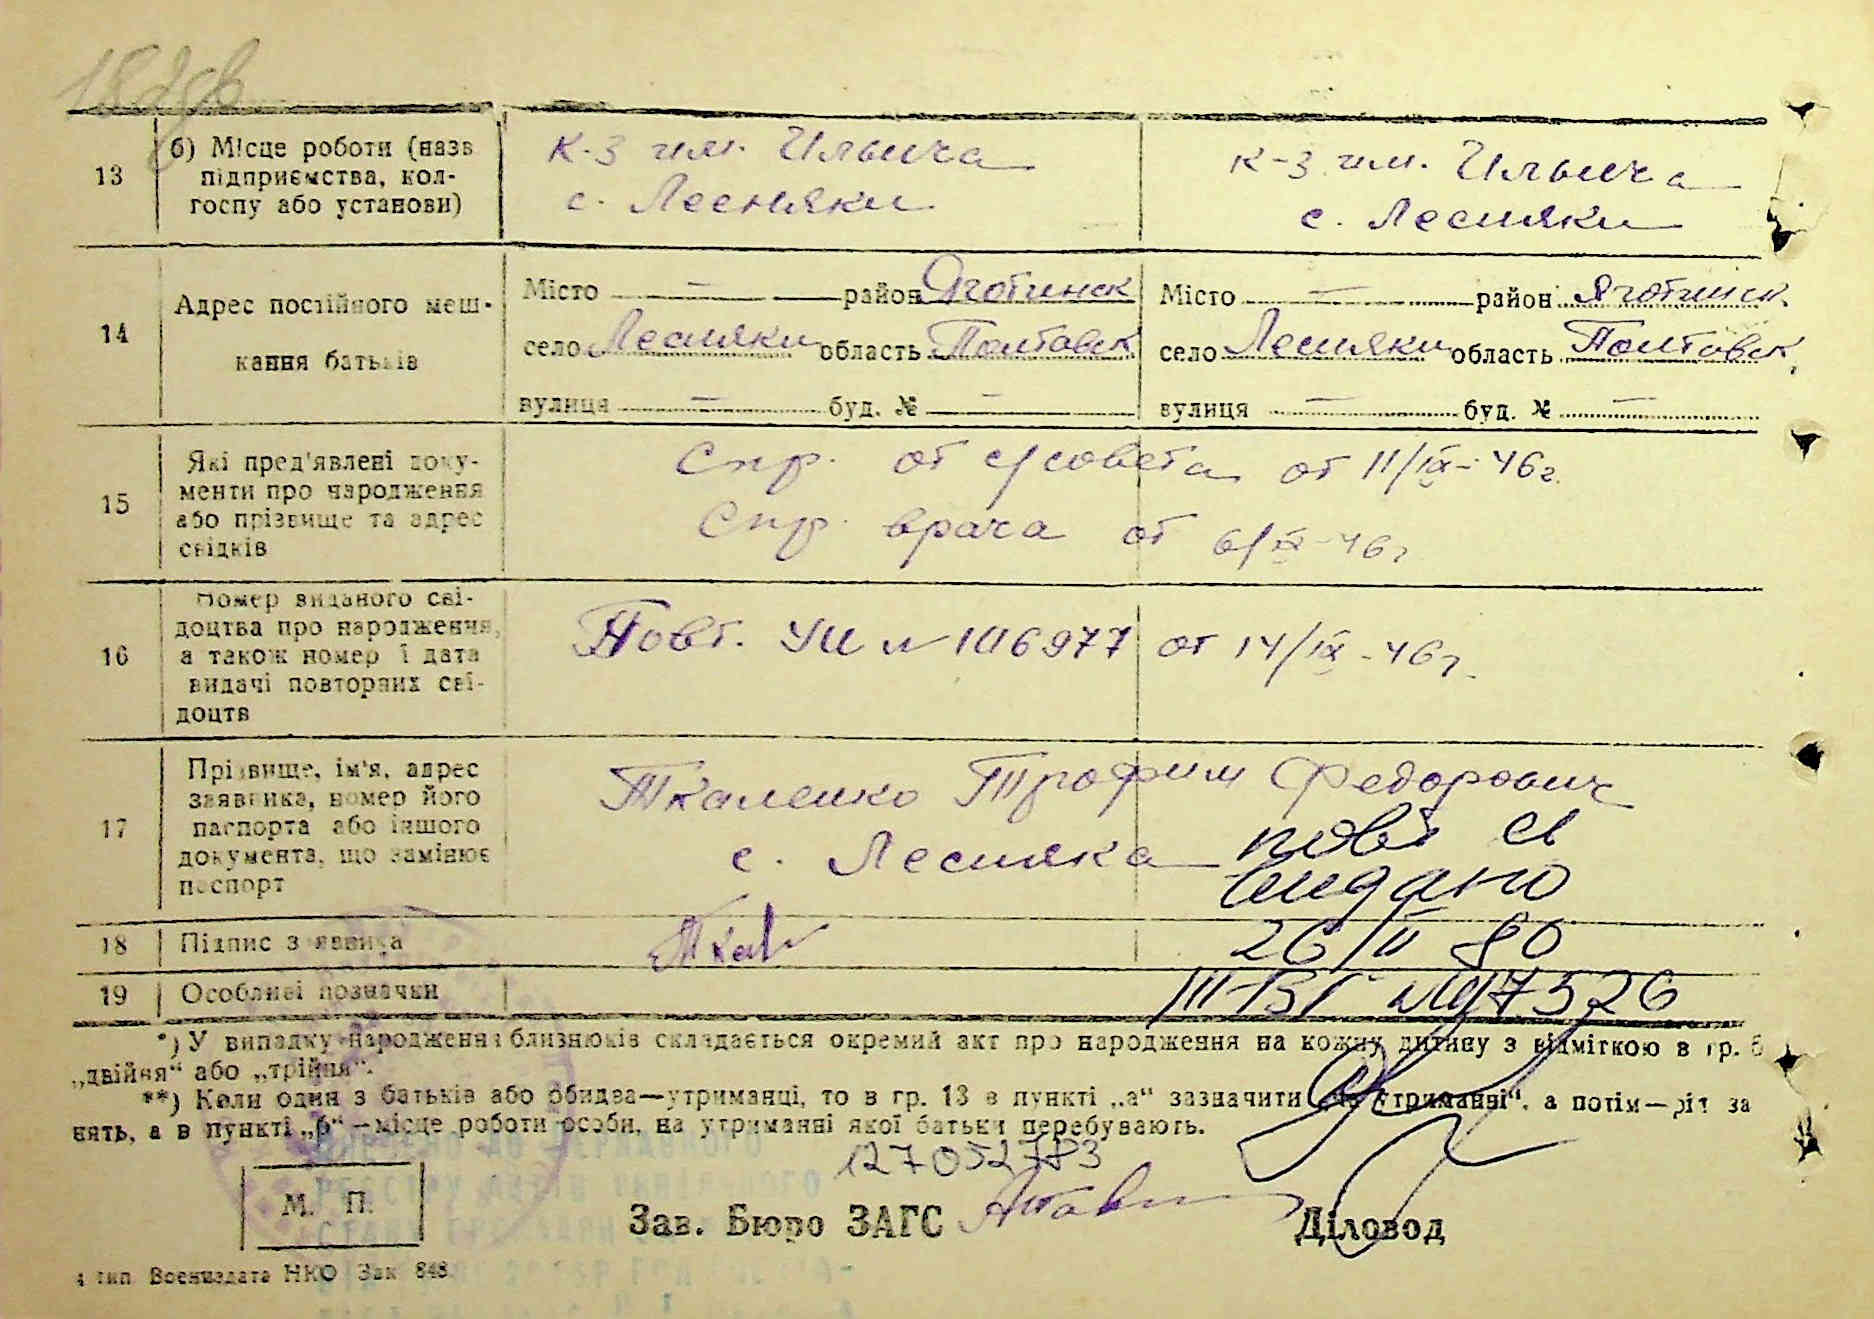 13 б) Місце роботи (назв
підприємства, кол-
госпу або установи)
к-з им. Ильича
с. Лесняки
к-з им. Ильича
с. Лесняки
14 Адрес постійного меш-
кання батьків
Місто — район Яготинск
село Лесняки область Полтавск
вулиця — буд. № —
Місто — район Яготинск.
село Лесняки область Полтавск.
вулиця — буд. № —
15 Які пред'явлені доку-
менти про народження
або прізвище та адрес
свідків
Спр. от с/совета от 11/IX-46г.
Спр. врача от 6/IX-46г
16 Номер виданого сві-
доцтва про народження,
а також номер і дата
видачі повторних сві-
доцтв
Повт. УШ № 106977 от 14/IX-46г.
17 Прізвище, ім'я, адрес
заявника, номер його
паспорта або іншого
документа, що замінює
паспорт
Ткаленко Трофим Федорович
с. Лесняка
повт св
видано
26/II 80
18 Підпис заявника
19 Особливі позначки
III-БГ №
*) У випадку народження близнюків складається окремий акт про народження на кожну дитину з відміткою в гр. 6
„двійня“ або „трійня“.
**) Коли один з батьків або обидва—утриманці, то в гр. 13 в пункті „а“ зазначити „на утриманні“, а потім—
нять, а в пункті „б“—місце роботи особи, на утриманні якої батьки перебувають.
127052783
М. П.
Зав. Бюро ЗАГС
Діловод
4 тип Воениздата НКО Зак 848